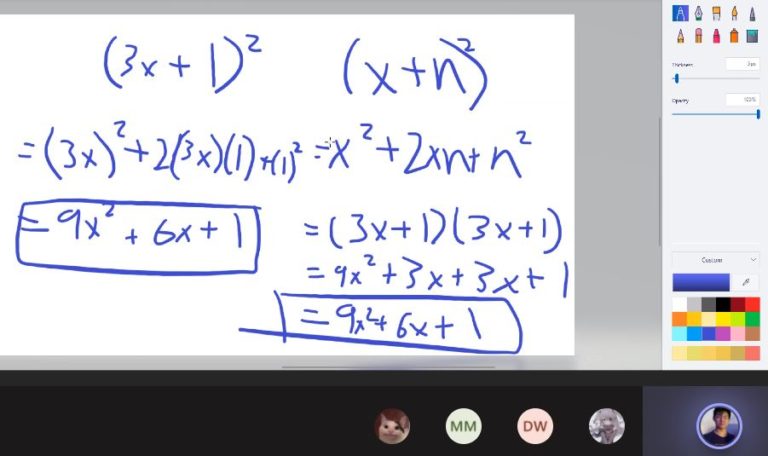 (3x + 1)²
= (3x)² + 2(3x)(1) + (1)²
= 9x² + 6x + 1
(x+n)²
= x² + 2xn + n²
= (3x+1)(3x+1)
= 9x² + 3x + 3x + 1
= 9x² + 6x + 1
Thickness
Opacity
100%
Custom
MM
DW